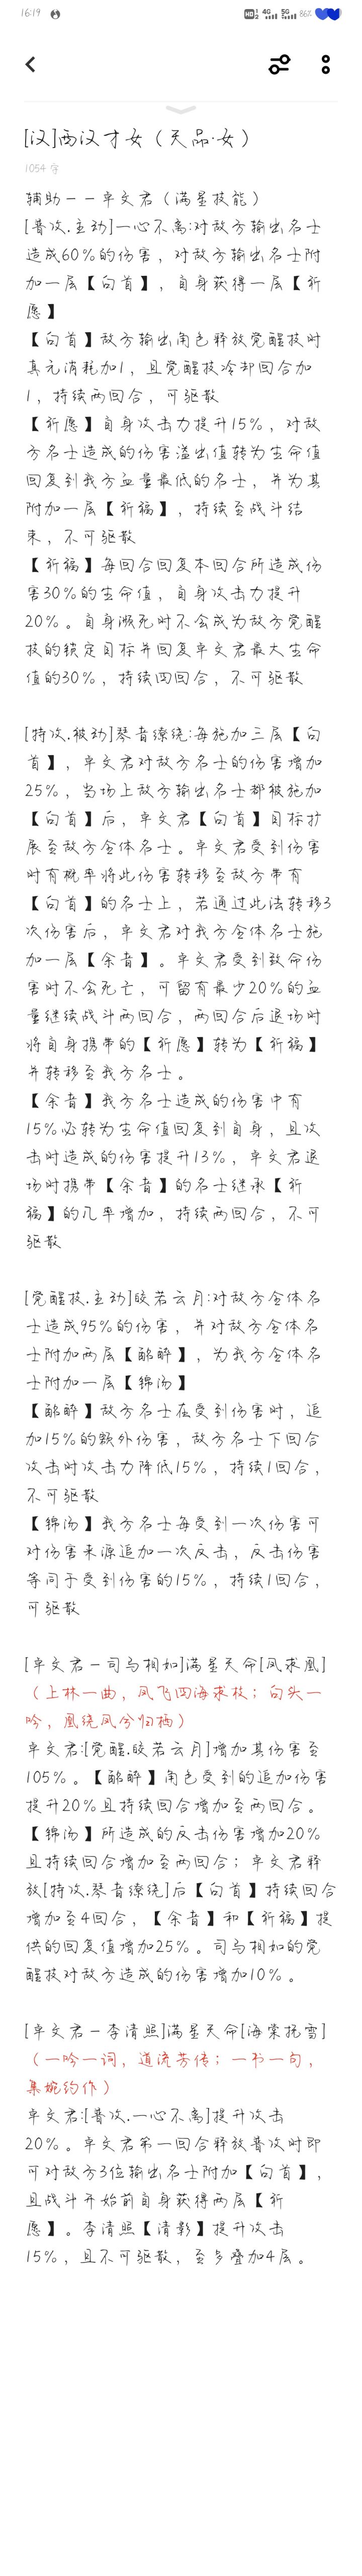 16:19
HD 1 2 4G 5G 86%
[汉]西汉才女（天品·女）
1054 字
辅助－－卓文君（满星技能）
[普攻.主动]一心不离:对敌方输出名士
造成60%的伤害，对敌方输出名士附
加一层【白首】，自身获得一层【祈
愿】
【白首】敌方输出角色释放觉醒技时
真元消耗加1，且觉醒技冷却回合加
1，持续两回合，可驱散
【祈愿】自身攻击力提升15%，对敌
方名士造成的伤害溢出值转为生命值
回复到我方血量最低的名士，并为其
附加一层【祈福】，持续至战斗结
束，不可驱散
【祈福】每回合回复本回合所造成伤
害30%的生命值，自身攻击力提升
20%。自身濒死时不会成为敌方觉醒
技的锁定目标并回复卓文君最大生命
值的30%，持续四回合，不可驱散
[特攻.被动]琴音缭绕:每施加三层【白
首】，卓文君对敌方名士的伤害增加
25%，当场上敌方输出名士都被施加
【白首】后，卓文君【白首】目标扩
展至敌方全体名士。卓文君受到伤害
时有概率将此伤害转移至敌方带有
【白首】的名士上，若通过此法转移3
次伤害后，卓文君对我方全体名士施
加一层【余音】。卓文君受到致命伤
害时不会死亡，可留有最少20%的血
量继续战斗两回合，两回合后退场时
将自身携带的【祈愿】转为【祈福】
并转移至我方名士。
【余音】我方名士造成的伤害中有
15%必转为生命值回复到自身，且攻
击时造成的伤害提升13%，卓文君退
场时携带【余音】的名士继承【祈
福】的几率增加，持续两回合，不可
驱散
[觉醒技.主动]皎若云月:对敌方全体名
士造成95%的伤害，并对敌方全体名
士附加两层【酩醉】，为我方全体名
士附加一层【锦汤】
【酩醉】敌方名士在受到伤害时，追
加15%的额外伤害，敌方名士下回合
攻击时攻击力降低15%，持续1回合，
不可驱散
【锦汤】我方名士每受到一次伤害可
对伤害来源追加一次反击，反击伤害
等同于受到伤害的15%，持续1回合，
可驱散
[卓文君－司马相如]满星天命[凤求凰]
（上林一曲，凤飞四海求枝；白头一
吟，凰绕凤兮归栖）
卓文君:[觉醒.皎若云月]增加其伤害至
105%。【酩醉】角色受到的追加伤害
提升20%且持续回合增加至两回合。
【锦汤】所造成的反击伤害增加20%
且持续回合增加至两回合；卓文君释
放[特攻.琴音缭绕]后【白首】持续回合
增加至4回合，【余音】和【祈福】提
供的回复值增加25%。司马相如的觉
醒技对敌方造成的伤害增加10%。
[卓文君－李清照]满星天命[海棠挽雪]
（一吟一词，道流芳传；一书一句，
集婉约作）
卓文君:[普攻.一心不离]提升攻击
20%。卓文君第一回合释放普攻时即
可对敌方3位输出名士附加【白首】，
且战斗开始前自身获得两层【祈
愿】。李清照【清影】提升攻击
15%，且不可驱散，至多叠加4层。